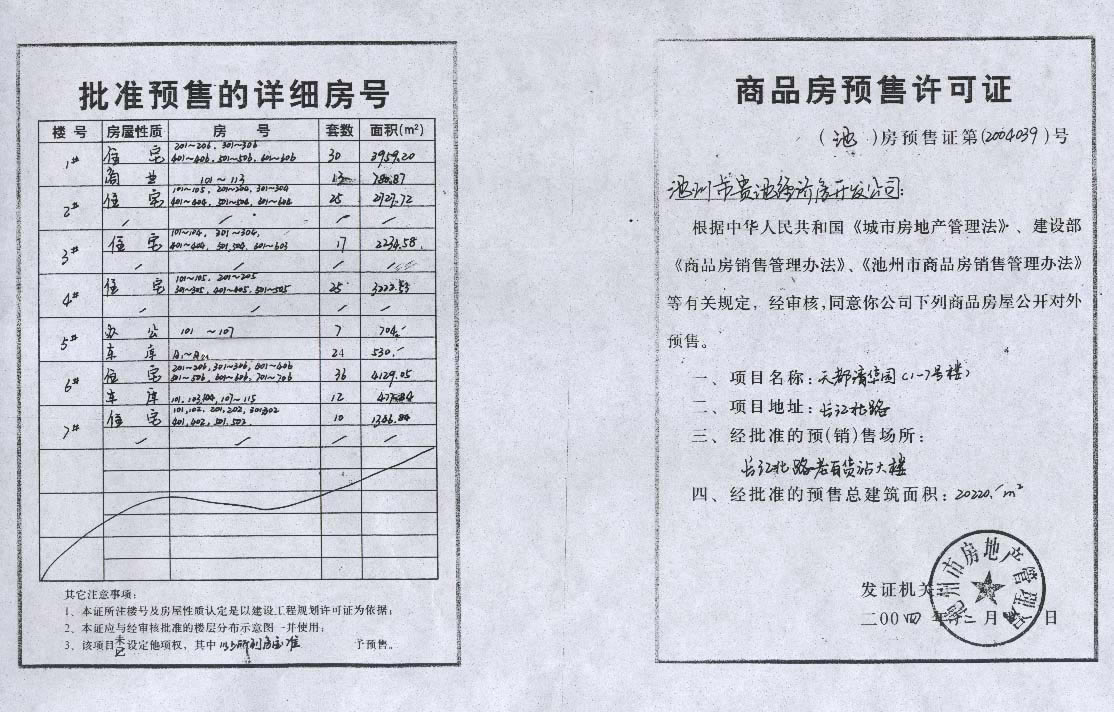 批准预售的详细房号
楼号 房屋性质 房号 套数 面积(m²)
1# 住宅 201~206, 301~306 401~406, 501~506, 601~606 30 3959.20
商业 101~113 13 780.87
2# 住宅 101~105, 201~204, 301~304 401~404, 501~504, 601~604 25 2727.72
3# 住宅 101~104, 301~304, 401~404, 501, 504, 601~603 17 2234.58
4# 住宅 101~105, 201~205 301~305, 401~405, 501~505 25 3222.53
5# 办公 101~107 7 704.
车库 24 530.
6# 住宅 201~206, 301~306, 401~406 501~506, 601~606, 701~706 36 4129.05
车库 101, 103, 104, 107~115 12
7# 住宅 101, 102, 201, 202, 301, 302 401, 402, 501, 502. 10 1346.84
其它注意事项:
1、本证所注楼号及房屋性质认定是以建设工程规划许可证为依据;
2、本证应与经审核批准的楼层分布示意图一并使用;
3、该项目未已设定他项权,其中 予预售。
商品房预售许可证
(池)房预售证第(2004039)号
池州市贵池经济房开发公司:
根据中华人民共和国《城市房地产管理法》、建设部
《商品房销售管理办法》、《池州市商品房销售管理办法》
等有关规定,经审核,同意你公司下列商品房屋公开对外
预售。
一、项目名称:天都清华园(1-7号楼)
二、项目地址:长江北路
三、经批准的预(销)售场所:
长江北路老百货站大楼
四、经批准的预售总建筑面积:20220. m²
池州市房地产管理局
发证机关:
二00四年十二月 日